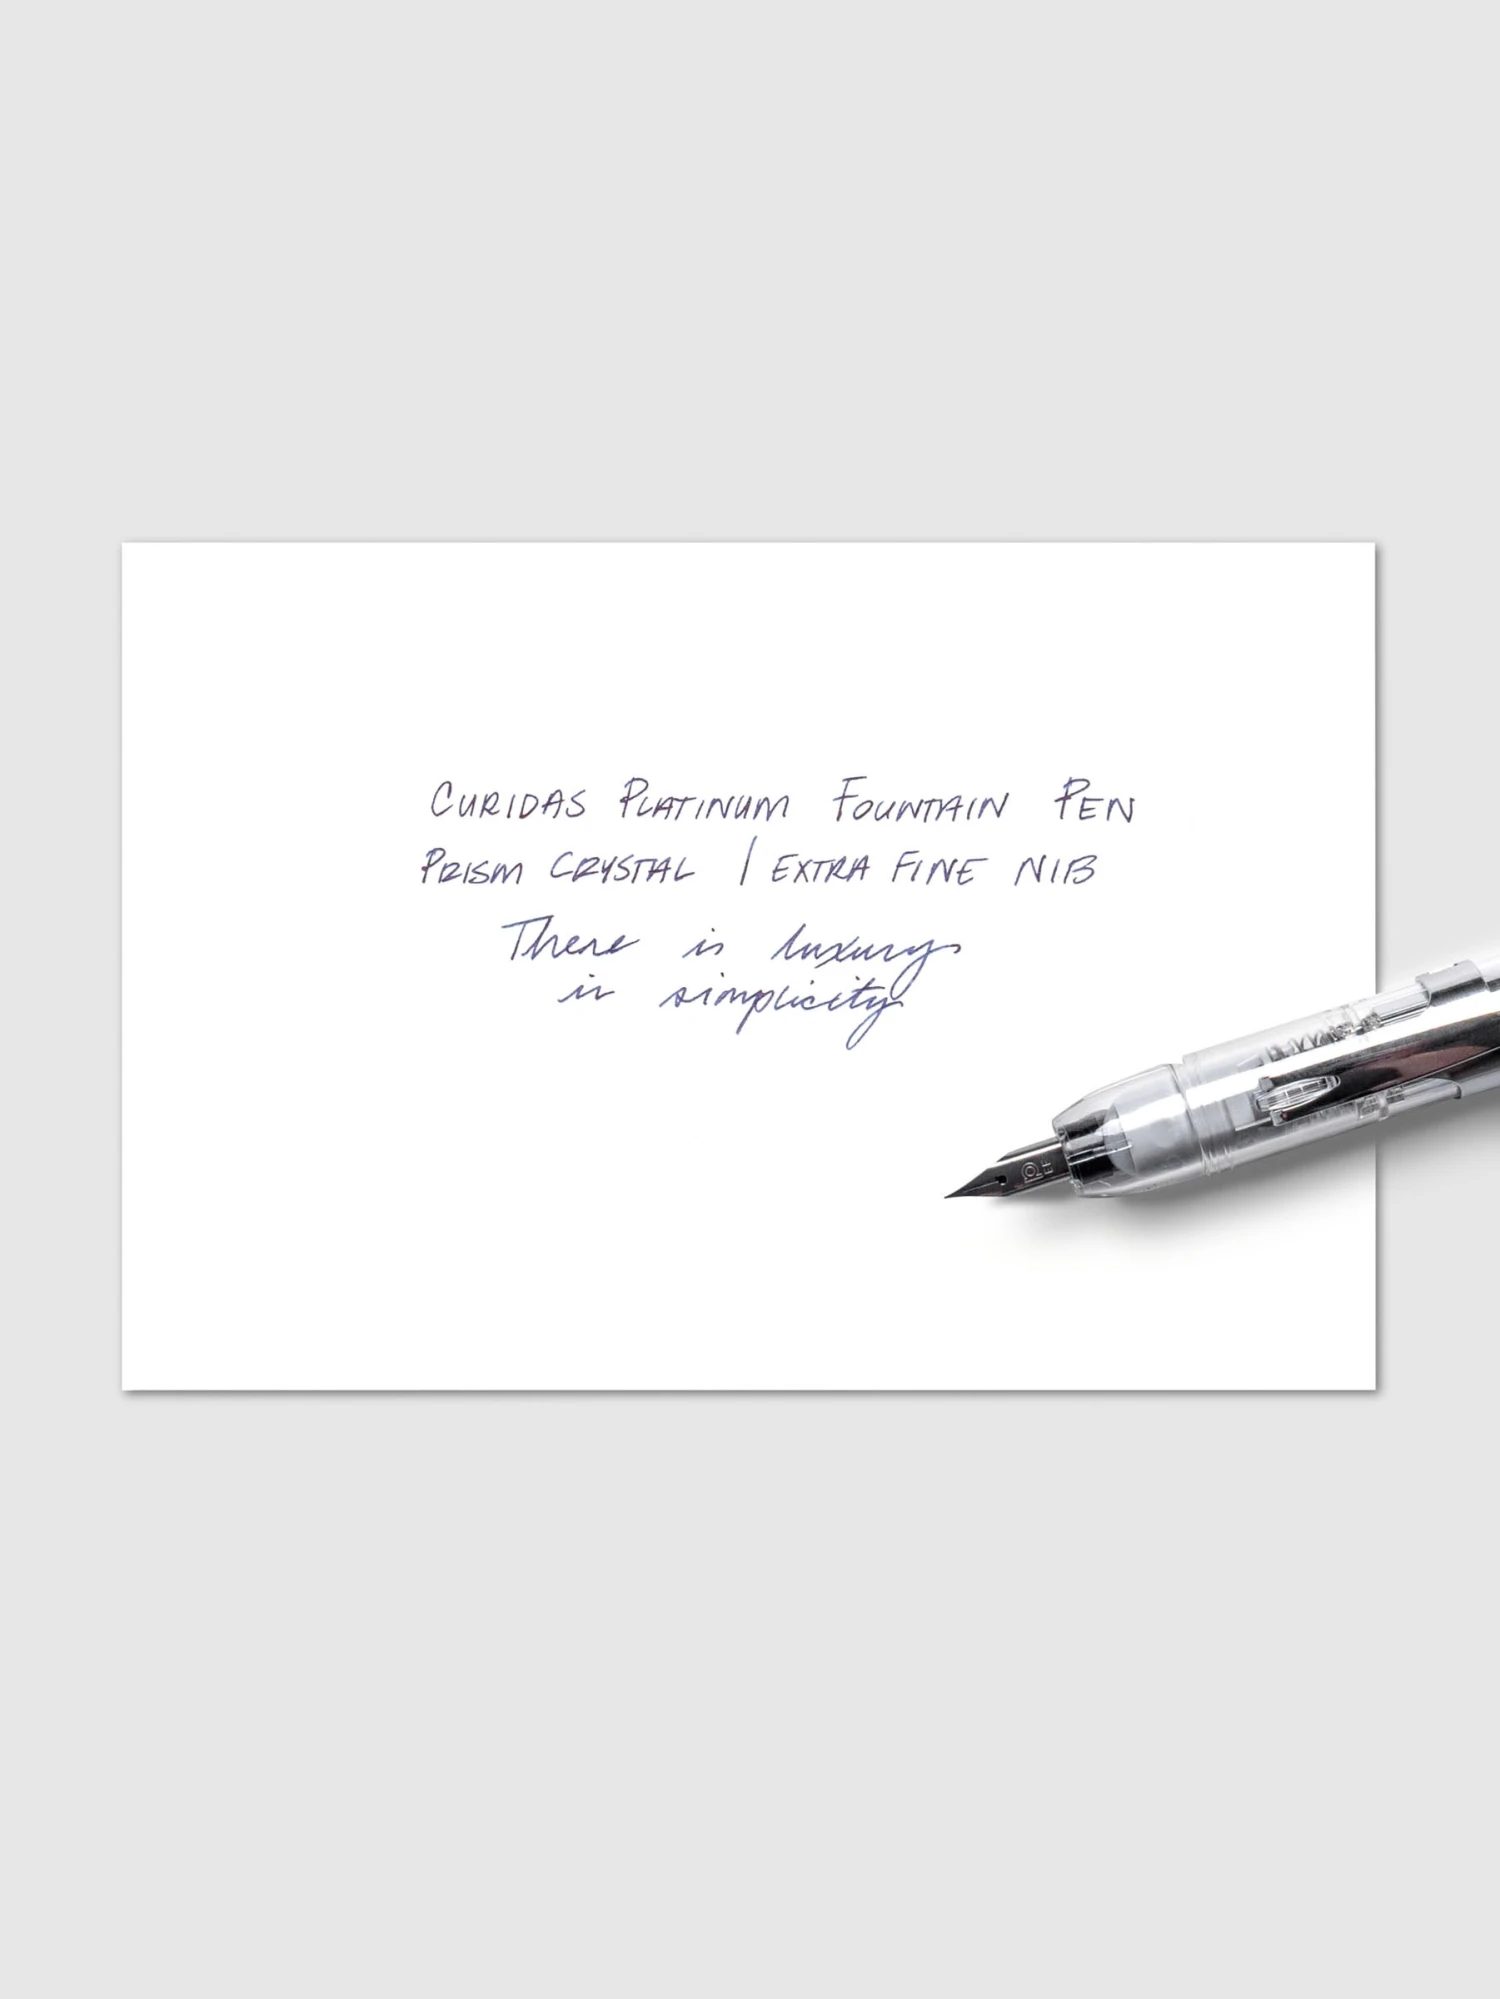 CURIDAS PLATINUM FOUNTAIN PEN
PRISM CRYSTAL | EXTRA FINE NIB
There is luxury
in simplicity
EF